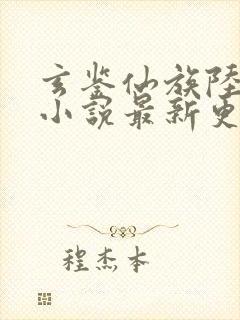 玄鉴仙族陸
小說最新更
程杰本